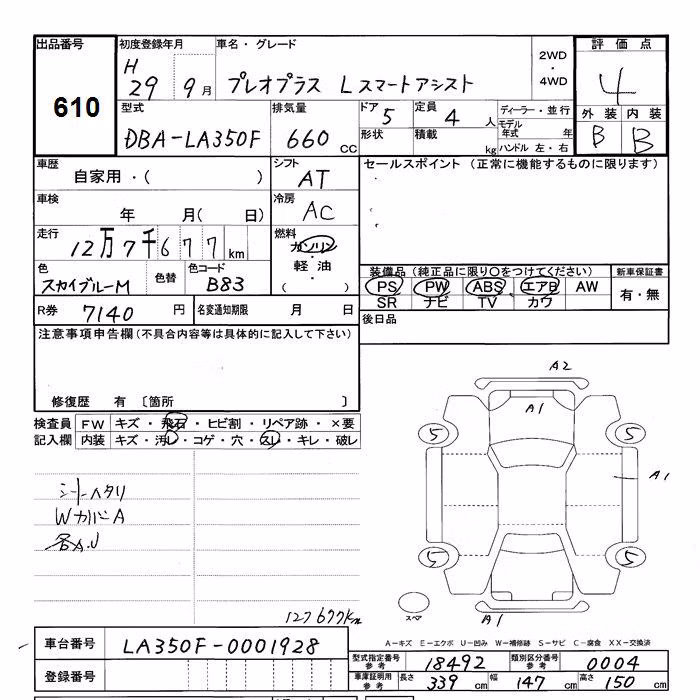 出品番号 初度登録年月 車名・グレード 2WD・4WD 評価点
610 H29 9月 プレオプラス Lスマートアシスト 4
型式 排気量 ドア 5 定員 4人 ディーラー・並行 外装 内装
DBA-LA350F 660cc 形状 積載 kg モデル年式 年 ハンドル 左・右 B B
車歴 シフト セールスポイント (正常に機能するものに限ります)
自家用・( ) AT
車検 冷房
年 月( 日) AC
走行 燃料
12万7千677km ガソリン・軽油・( )
色 色替 色コード 装備品 (純正品に限り○をつけてください) 新車保証書
スカイブルーM B83 PS PW ABS エアB AW 有・無
SR ナビ TV カワ
R券 7140円 名変通知期限 月 日 後日品
注意事項申告欄(不具合内容等は具体的に記入して下さい)
修復歴 有 〔箇所 〕
検査員 FW キズ・飛石・ヒビ割・リペア跡・×要
記入欄 内装 キズ・汚レ・コゲ・穴・スレ・キレ・破レ
シートヘタリ
WカバーA
各A.U
127677km
A2
A1
5 5
A1
5 5
スペア
A1
A-キズ E-エクボ U-凹み W-補修跡 S-サビ C-腐食 XX-交換済
車台番号 LA350F-0001928
型式指定番号 参考 18492 類別区分番号 参考 0004
登録番号 車庫証明用 参考 長さ 339cm 幅 147cm 高さ 150cm